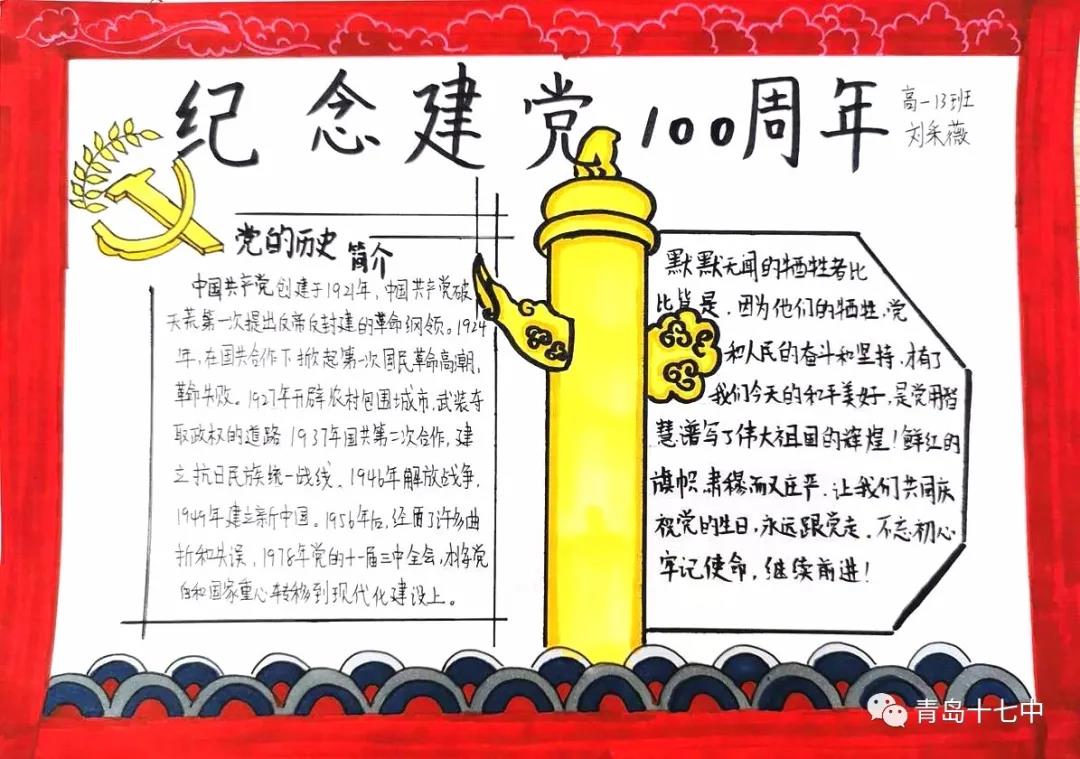 纪念建党100周年
高一13班
刘采薇
党的历史
简介
中国共产党创建于1921年，中国共产党破
天荒第一次提出反帝反封建的革命纲领。1924
年，在国共合作下掀起第一次国民革命高潮，
革命失败。1927年开辟农村包围城市，武装夺
取政权的道路 1937年国共第二次合作，建
立抗日民族统一战线。1946年解放战争，
1949年建立新中国。1956年后，经历了许多曲
折和失误，1978年党的十一届三中全会，才将党
和国家重心转移到现代化建设上。
默默无闻的牺牲者比
比皆是，因为他们的牺牲，党
和人民的奋斗和坚持，才有了
我们今天的和平美好，是党用智
慧谱写了伟大祖国的辉煌！鲜红的
旗帜，肃穆而又庄严，让我们共同庆
祝党的生日，永远跟党走。不忘初心
牢记使命，继续前进！
青岛十七中